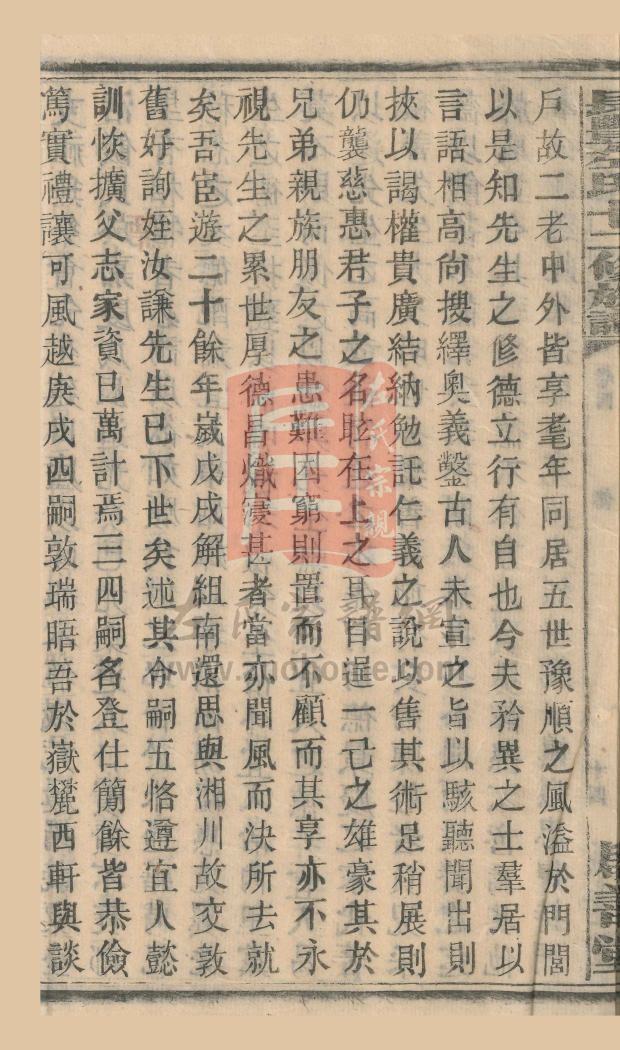 戶故二老中外皆享耄年同居五世豫順之風溢於門閭
以是知先生之修德立行有自也今夫矜異之士羣居以
言語相高尙搜繹奧義鑿古人未宣之旨以駭聽聞出則
挾以謁權貴廣結納勉託仁義之說以售其術足稍展則
仍襲慈惠君子之名眩在上之耳目逞一己之雄豪其於
兄弟親族朋友之患難困窮則置而不顧而其享亦不永
視先生之累世厚德昌熾寖甚者當亦聞風而決所去就
矣吾宦遊二十餘年嵗戊戌解組南還思與湘川故交敦
舊好詢姪汝謙先生已下世矣述其令嗣五恪遵宜人懿
訓恢擴父志家資已萬計焉三四嗣名登仕簡餘皆恭儉
篤實禮讓可風越庚戌四嗣敦瑞晤吾於嶽麓西軒與談
左氏宗親
左氏家譜網